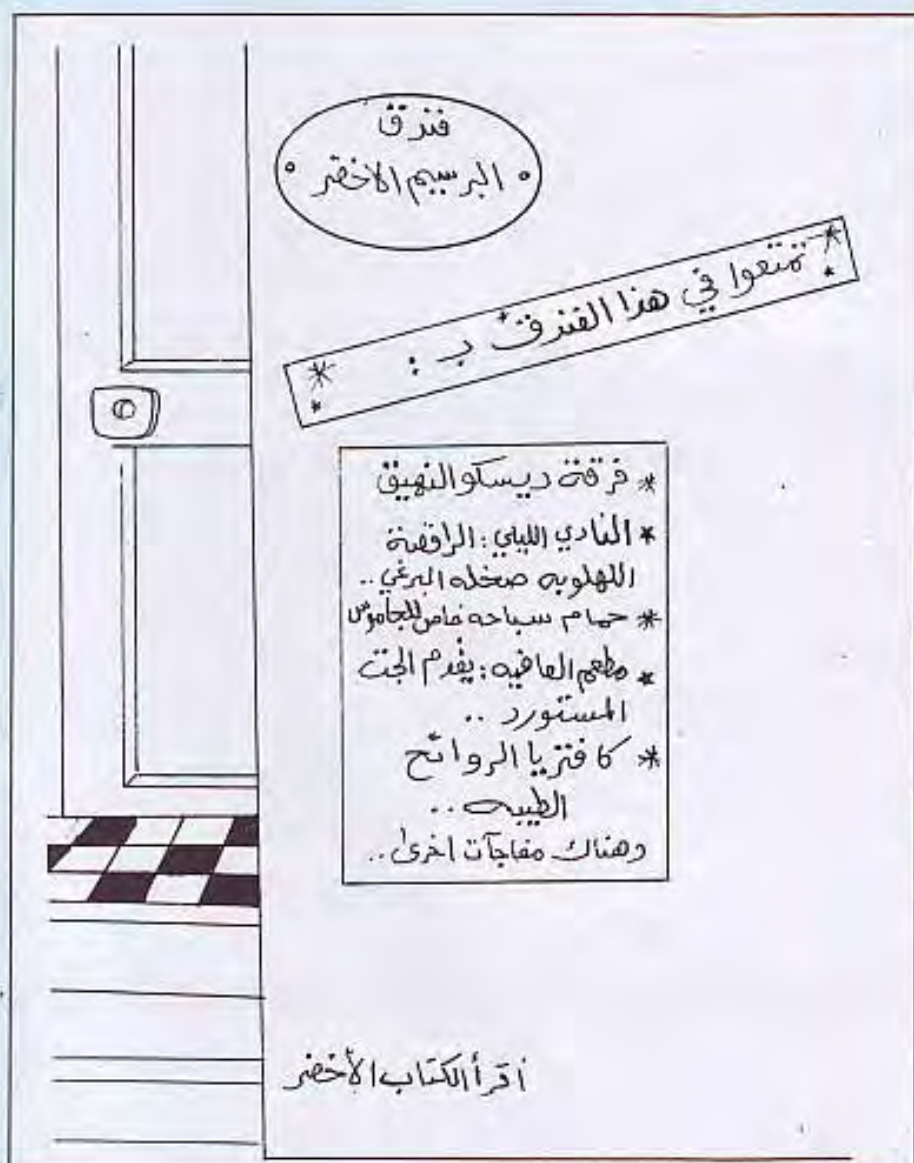 فندق
البرسيم الاخضر
تمتعوا في هذا الفندق ب :
* فرقة ديسكو النهيق
* النادي الليلي : الراقصة
اللهلوبه صخله البرغي ..
* حمام سباحه خاص للجاموس
* مطعم العافيه : يقدم الجت
المستورد ..
* كافتريا الروائح
الطيبه ..
وهناك مفاجآت اخرى ..
أقرأ الكتاب الأخضر